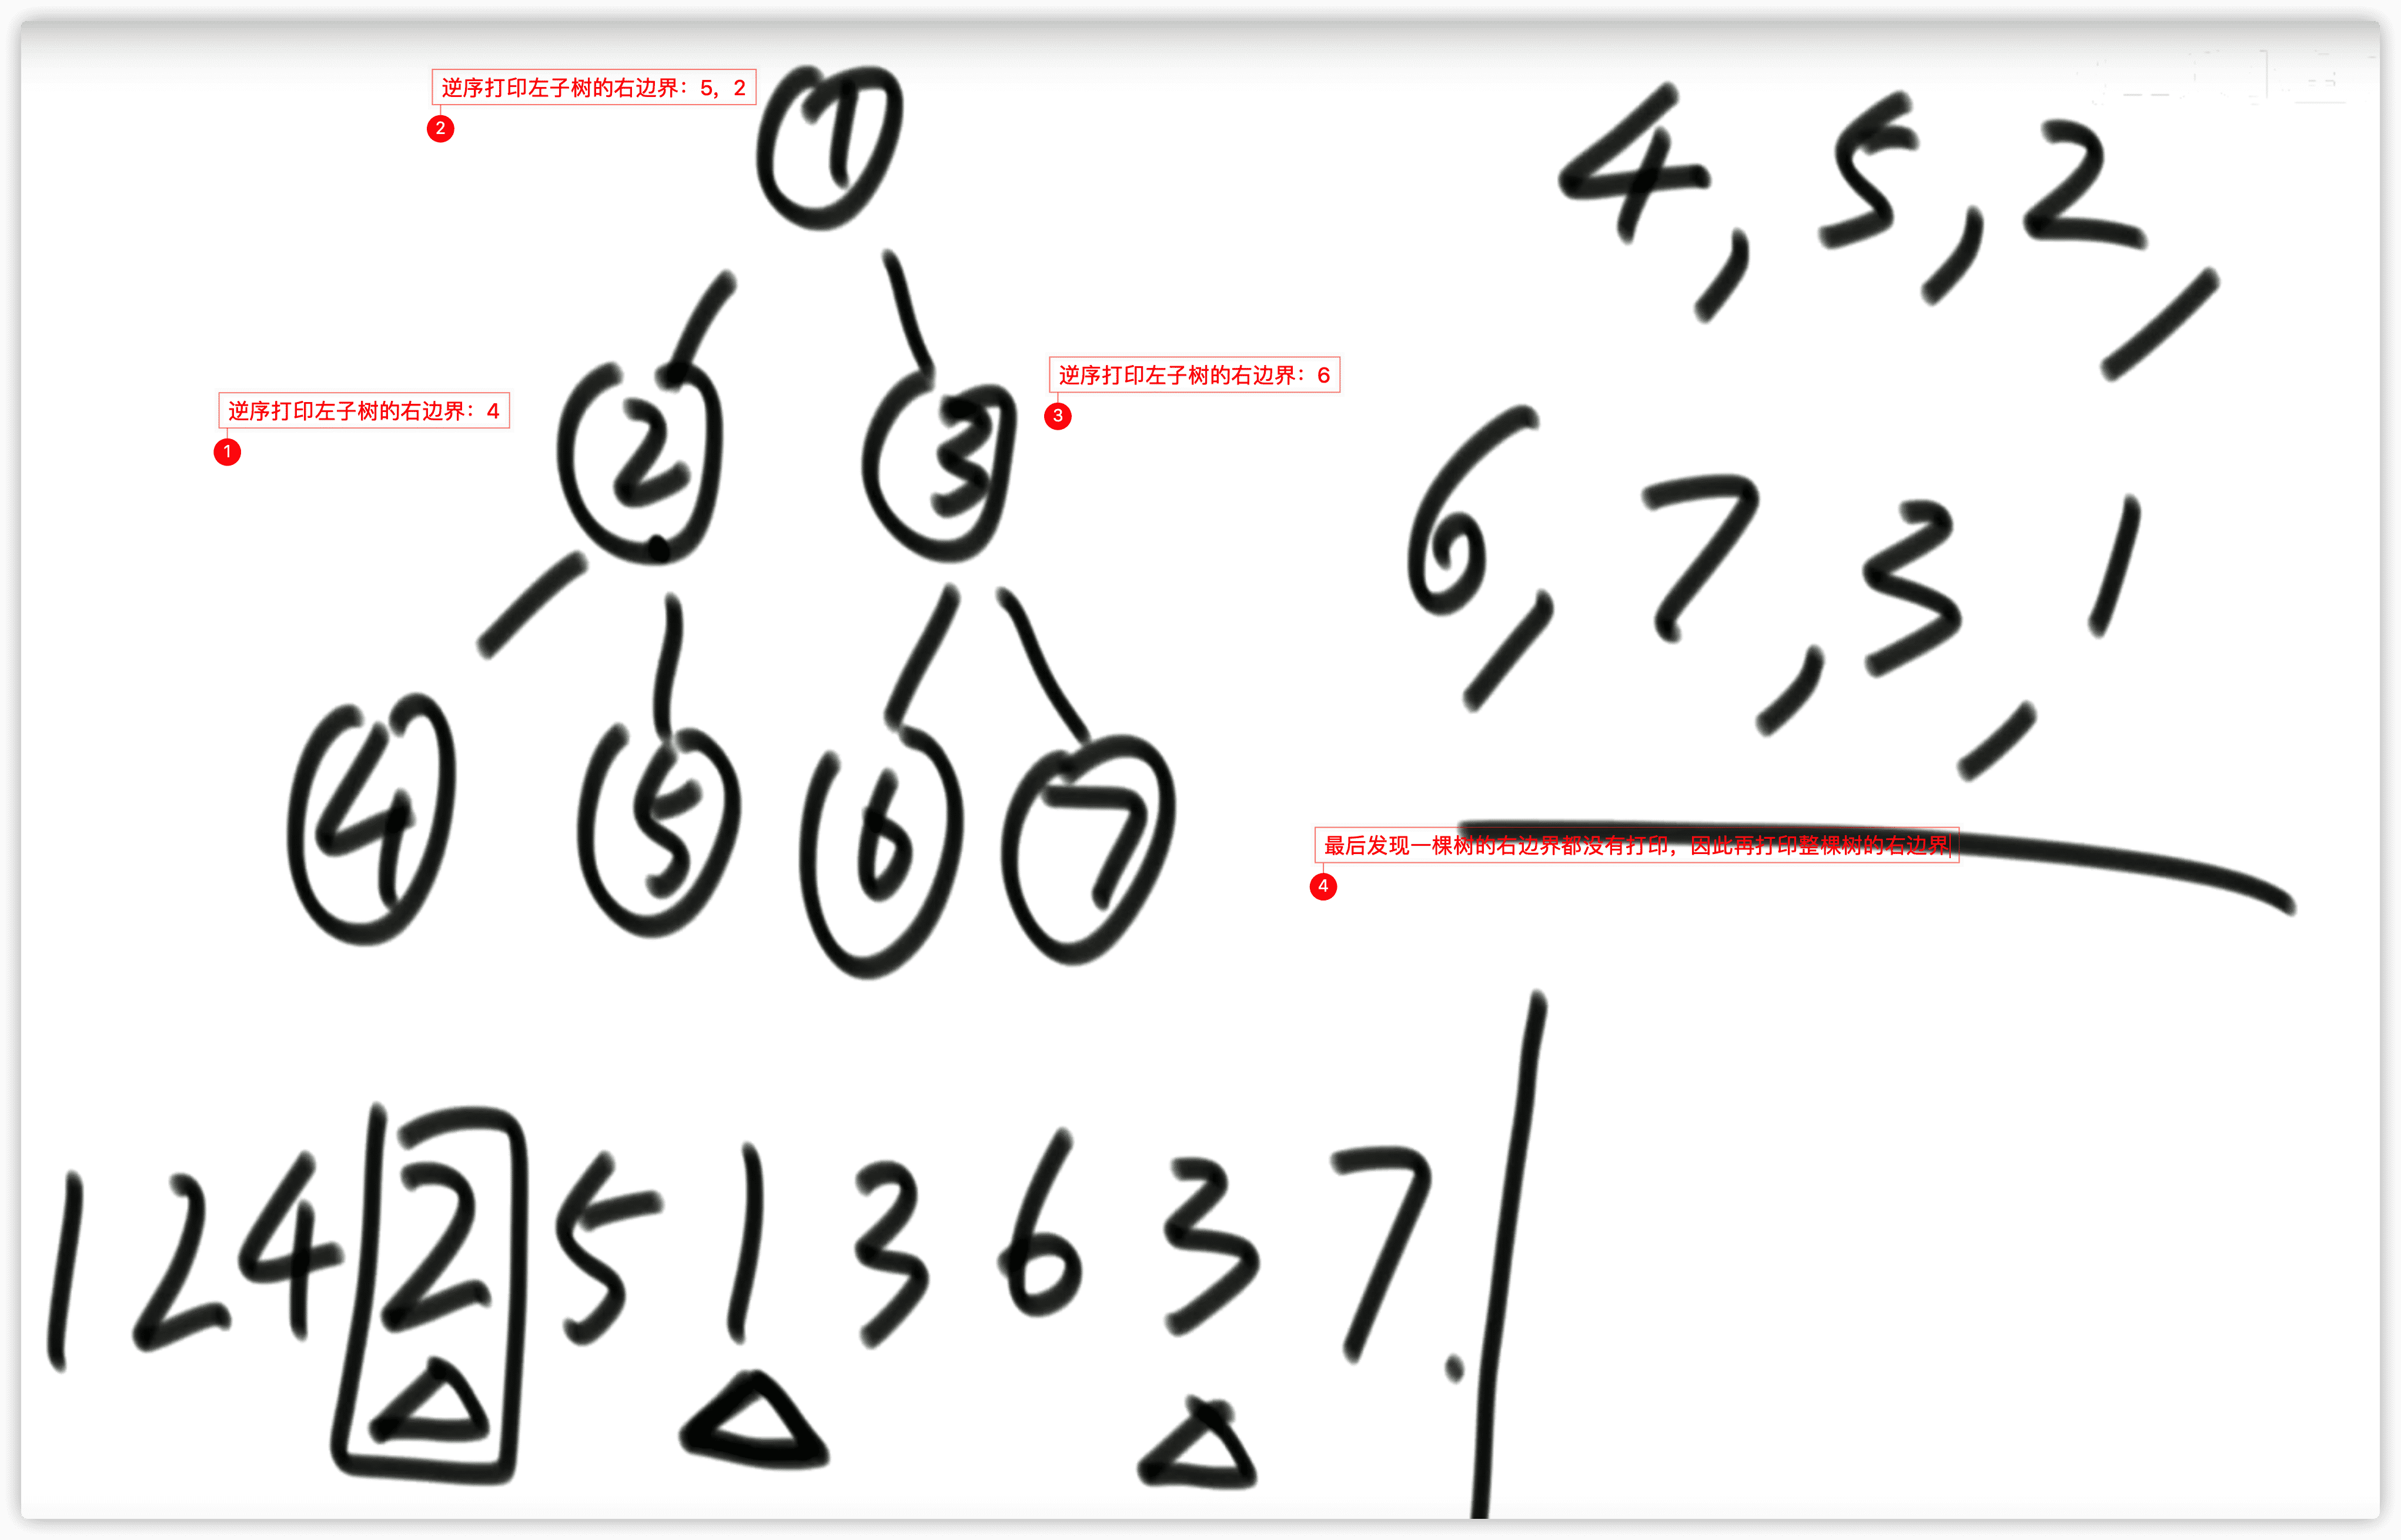 逆序打印左子树的右边界：5，2
2
1
4,5,2,
逆序打印左子树的右边界：6
3
逆序打印左子树的右边界：4
1
2
3
6,7,3,1
4
5
6
7
最后发现一棵树的右边界都没有打印，因此再打印整棵树的右边界
4
1 2 4 2 5 1 3 6 3 7.